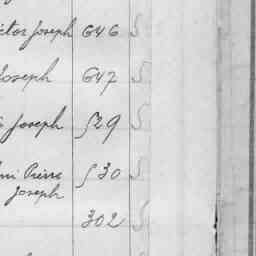 ctor Joseph 646 S
Joseph 647 S
Joseph 529 S
Pierre 530 S
Joseph
302 S